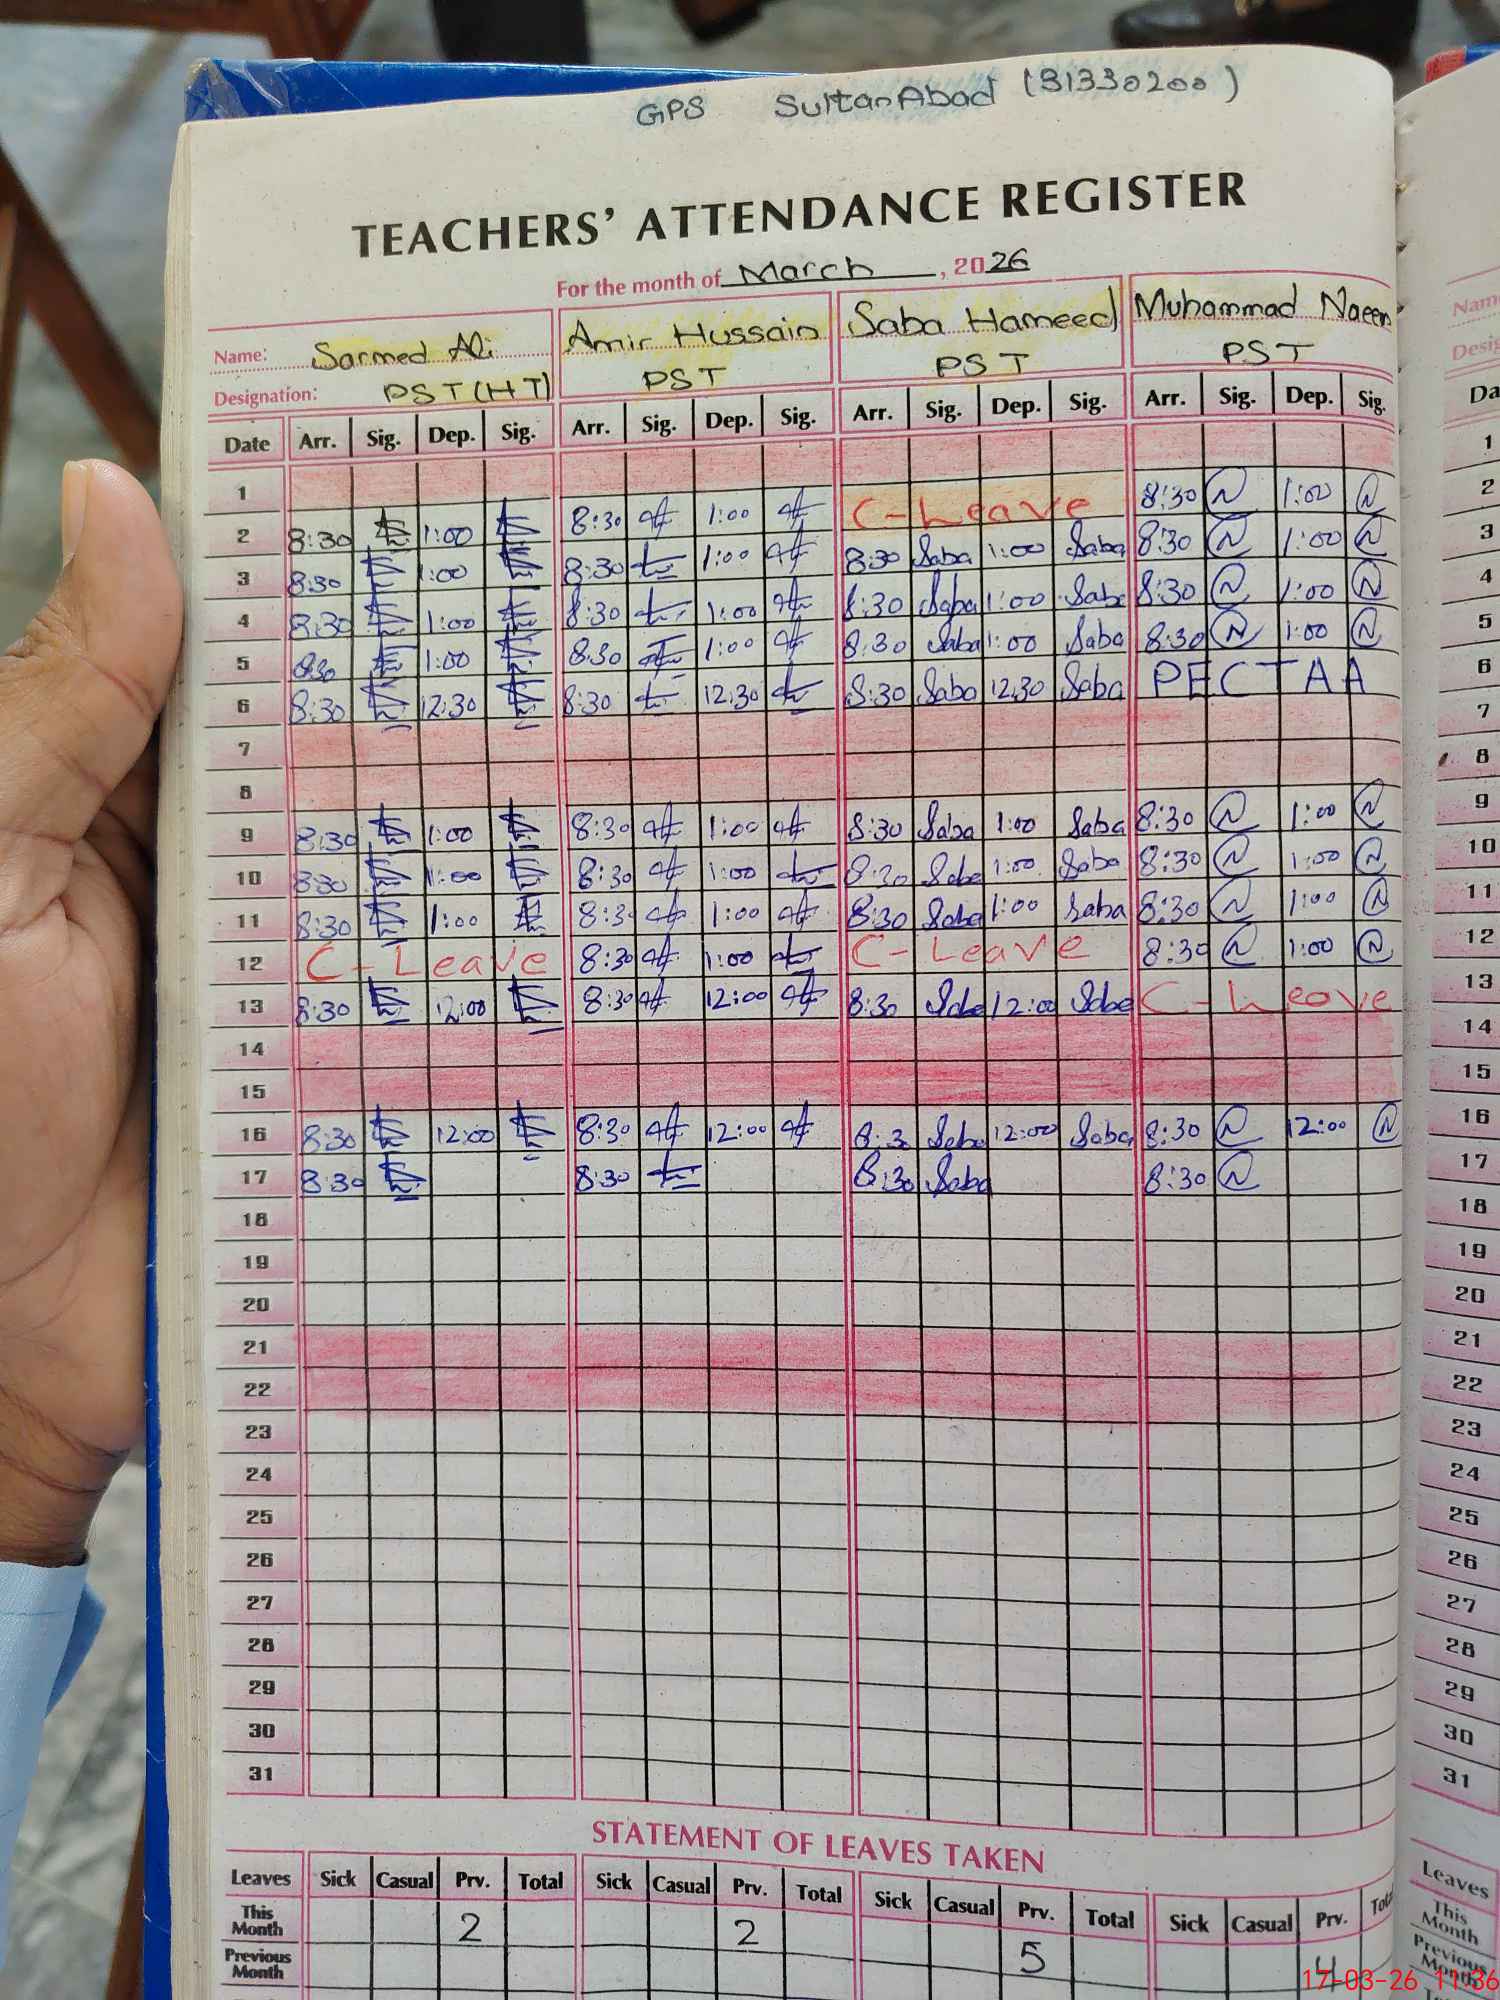 GPS SultanAbad (31330200)
TEACHERS' ATTENDANCE REGISTER
For the month of March, 2026
Name: Sarmed Ali Amir Hussain Saba Hameed Muhammad Naeem
Designation: PST(HT) PST PST PST
Date Arr. Sig. Dep. Sig. Arr. Sig. Dep. Sig. Arr. Sig. Dep. Sig. Arr. Sig. Dep. Sig.
1
2 8:30 1:00 8:30 1:00 C-Leave 8:30 1:00
3 8:30 1:00 8:30 1:00 8:30 Saba 1:00 Saba 8:30 1:00
4 8:30 1:00 8:30 1:00 8:30 Saba 1:00 Saba 8:30 1:00
5 8:30 1:00 8:30 1:00 8:30 Saba 1:00 Saba 8:30 1:00
6 8:30 12:30 8:30 12:30 8:30 Saba 12:30 Saba PECTAA
7
8
9 8:30 1:00 8:30 1:00 8:30 Saba 1:00 Saba 8:30 1:00
10 8:30 1:00 8:30 1:00 8:30 Saba 1:00 Saba 8:30 1:00
11 8:30 1:00 8:3 1:00 8:30 Saba 1:00 Saba 8:30 1:00
12 C-Leave 8:30 1:00 C-Leave 8:30 1:00
13 8:30 12:00 8:30 12:00 8:30 Saba 12:00 Saba C-Leave
14
15
16 8:30 12:00 8:30 12:00 8:3 Saba 12:00 Saba 8:30 12:00
17 8:30 8:30 8:30 Saba 8:30
18
19
20
21
22
23
24
25
26
27
28
29
30
31
STATEMENT OF LEAVES TAKEN
Leaves Sick Casual Prv. Total Sick Casual Prv. Total Sick Casual Prv. Total Sick Casual Prv.
This Month 2 2
Previous Month 5 4
17-03-26 11:36
Da
1
2
3
4
5
6
7
8
9
10
11
12
13
14
15
16
17
18
19
20
21
22
23
24
25
26
27
28
29
30
31
Leaves
This Month
Previous